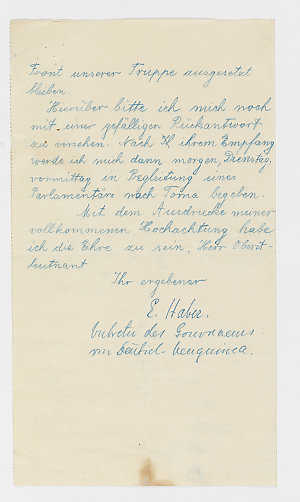 Front unserer Truppe ausgesetzt
bleiben.
Hierüber bitte ich mich noch
mit einer gefälligen Rückantwort
zu versehen. Nach ihrem Empfang
werde ich mich dann morgen, Dienstag,
vormittag in Begleitung eines
Parlamentärs nach Toma begeben.
Mit dem Ausdrucke meiner
vollkommenen Hochachtung habe
ich die Ehre zu sein, Herr Oberst-
leutnant
Ihr ergebener
E. Haber.
des Gouverneurs
von Deutsch-Neuguinea.